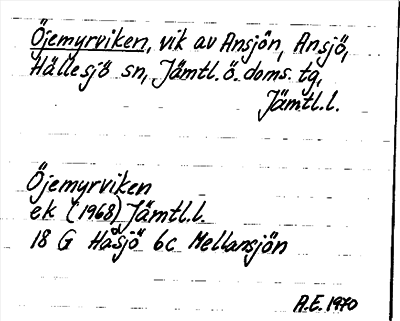 Öjemyrviken, vik av Ansjön, Ansjö,
Hällesjö sn, Jämtl. ö. doms. tg,
Jämtl.l.
Öjemyrviken
ek (1968) Jämtl.l.
18 G Håsjö 6c Mellansjön
A.E. 1970